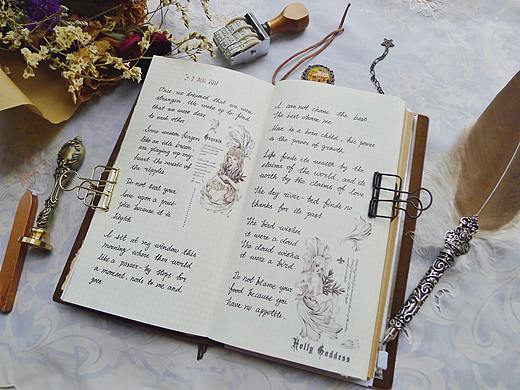 Once we dreamed that we were
strangers. We wake up to find
that we were dear
to each other.
Some unseen fingers
like an idle breeze,
are playing upon my
heart the music of
the ripples.
Do not seat your
love upon a preci-
pice because it is
hight.
I sit at my window this
morning where ther world
like a passer-by stops for
a moment, nods to me and
goes.
I can not choose the best.
The best chooses me.
Man is a born child, his power
is the power of growth.
Life finds its wealth by the
claims of the world, and its
worth by the claims of love.
The dry river-bed finds no
thanks for its past.
The bird wishes
it were a cloud.
The cloud wishes
it were a bird.
Do not blame your
food because you
have no appetite.
Holly Goddess